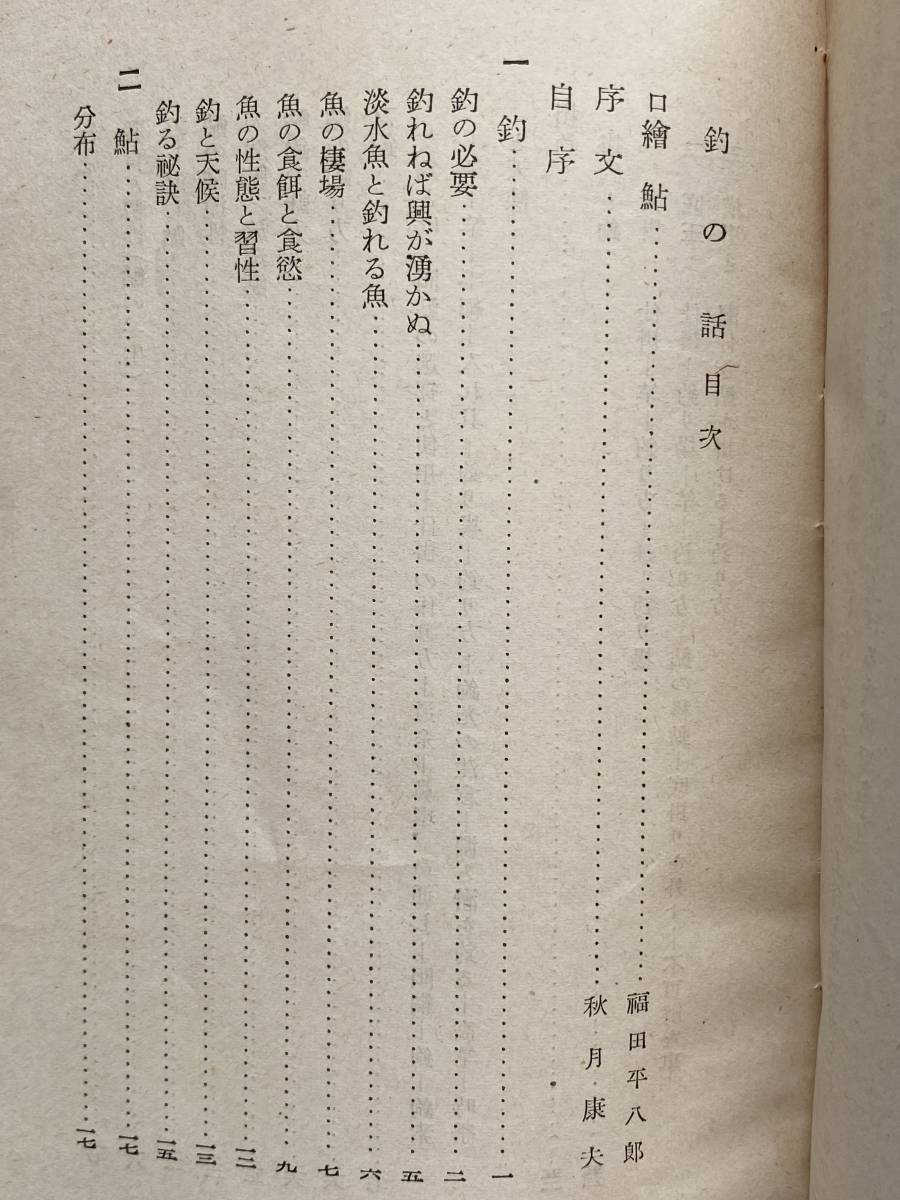 釣の話目次
口繪 鮎……福田平八郎
序文……秋月康夫
自序
一 釣……一
釣の必要……二
釣れねば興が湧かぬ……五
淡水魚と釣れる魚……六
魚の棲場……七
魚の食餌と食慾……九
魚の性態と習性……一二
釣と天候……一三
釣る祕訣……一五
二 鮎……一七
分布……一七